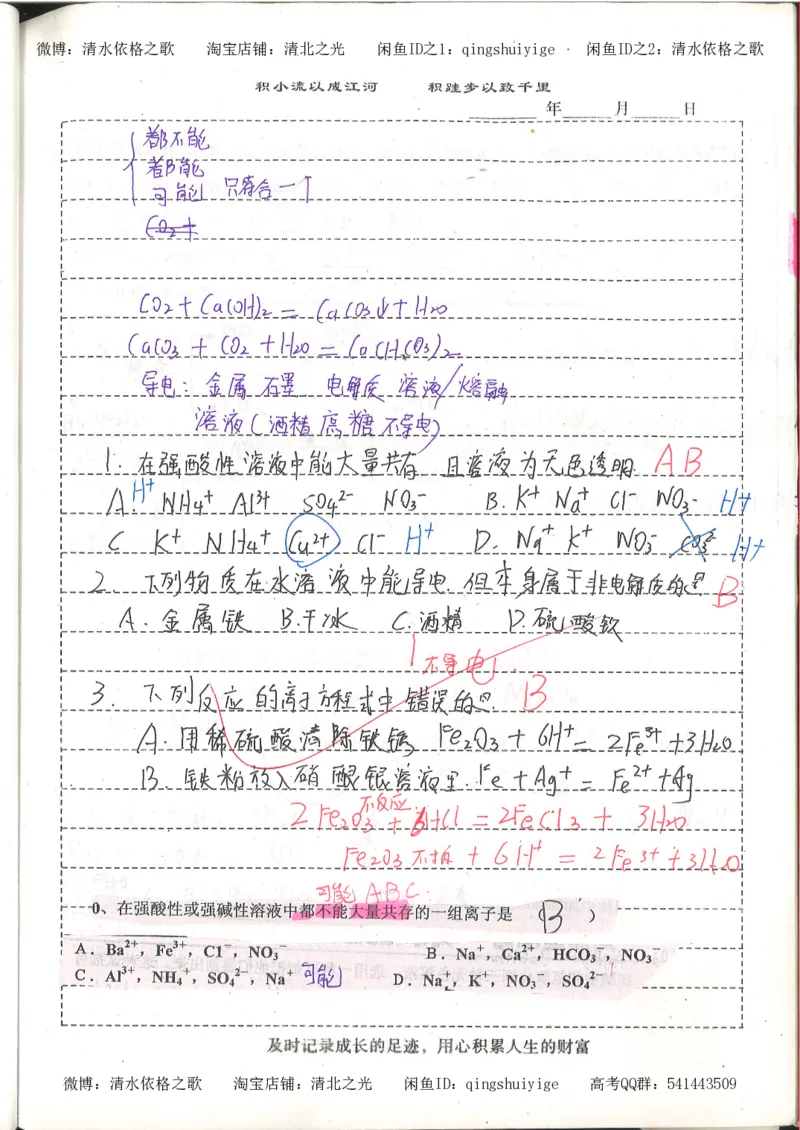 微博：清水依格之歌 淘宝店铺：清北之光 闲鱼ID之1：qingshuiyige 闲鱼ID之2：清水依格之歌
积小流以成江河 积跬步以致千里
年 月 日
都不能
都能
可能 只符合一个
CO₂+
CO₂+Ca(OH)₂=CaCO₃↓+H₂O
CaCO₃+CO₂+H₂O=Ca(HCO₃)₂
导电：金属 石墨 电解质 溶液/熔融
溶液(酒精 蔗糖 不导电)
1. 在强酸性溶液中能大量共存，且溶液为无色透明 AB
A. H⁺ NH₄⁺ Al³⁺ SO₄²⁻ NO₃⁻ B. K⁺ Na⁺ Cl⁻ NO₃⁻ H⁺
C K⁺ NH₄⁺ Cu²⁺ Cl⁻ H⁺ D. Na⁺ K⁺ NO₃⁻ CO₃²⁻ H⁺
2. 下列物质在水溶液中能导电，但本身属于非电解质的是 B
A. 金属铁 B. 干冰 C. 酒精 D. 硫酸钡
不导电
3. 下列反应的离子方程式中错误的是 B
A. 用稀硫酸清除铁锈 Fe₂O₃+6H⁺=2Fe³⁺+3H₂O
B. 铁粉放入硝酸银溶液里. Fe+Ag⁺=Fe²⁺+Ag
不反应
2Fe₂O₃+6HCl=2FeCl₃+3H₂O
Fe₂O₃不拆+6H⁺=2Fe³⁺+3H₂O
可能ABC.
0、在强酸性或强碱性溶液中都不能大量共存的一组离子是（B）
A．Ba²⁺，Fe³⁺，Cl⁻，NO₃⁻ B．Na⁺，Ca²⁺，HCO₃⁻，NO₃⁻
C．Al³⁺，NH₄⁺，SO₄²⁻，Na⁺ 可能 D．Na⁺，K⁺，NO₃⁻，SO₄²⁻
及时记录成长的足迹，用心积累人生的财富
微博：清水依格之歌 淘宝店铺：清北之光 闲鱼ID：qingshuiyige 高考QQ群：541443509